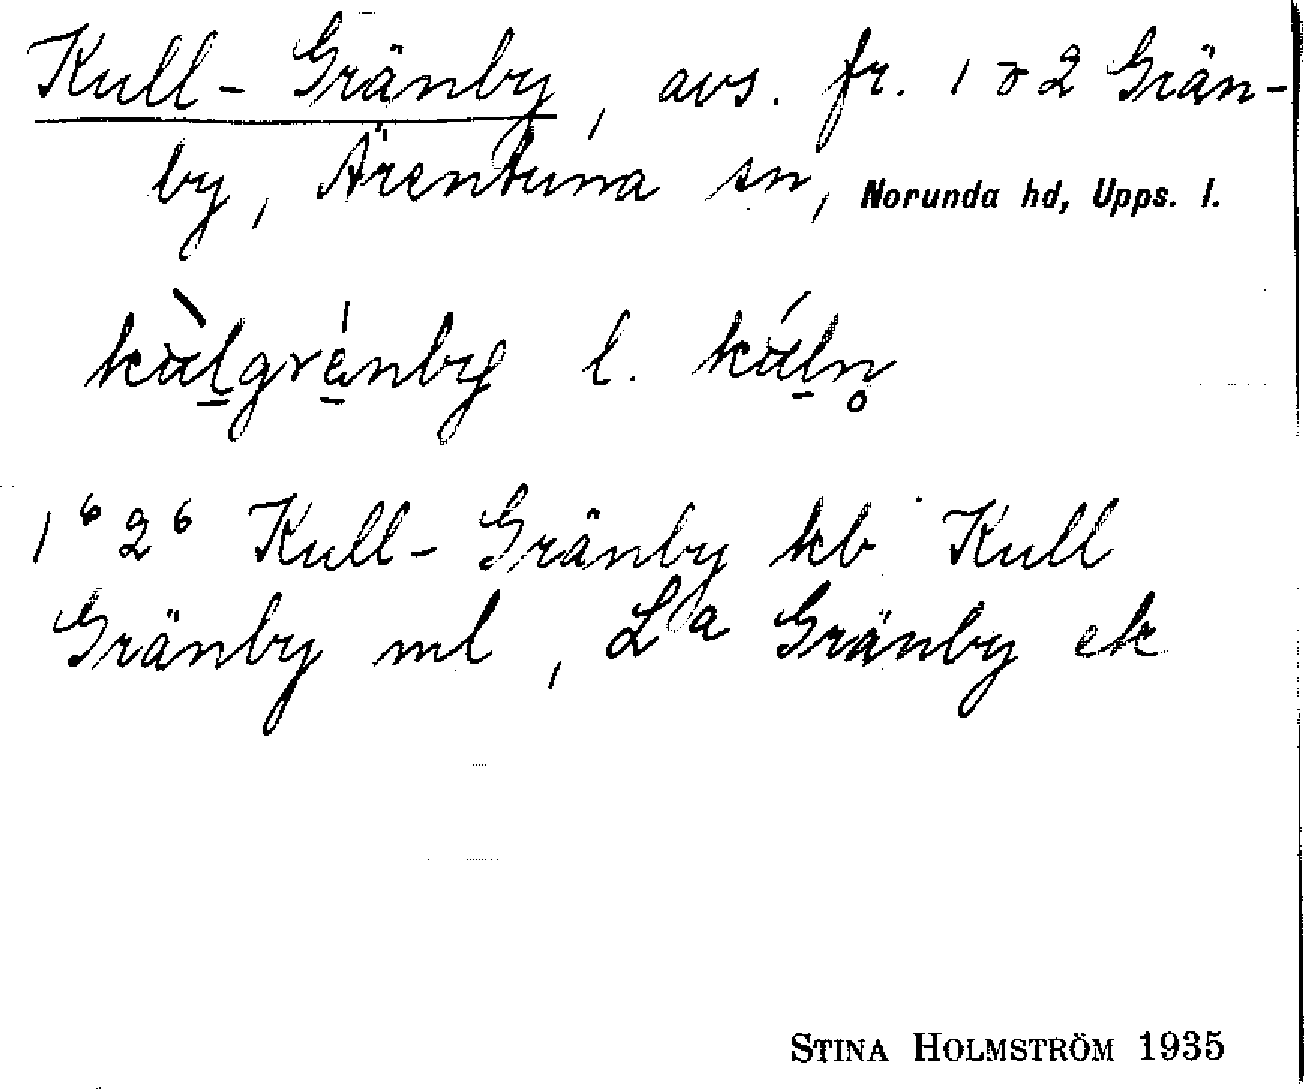 Kull-Gränby, avs. fr. 1 o 2 Grän-
by, Ärentuna sn, Norunda hd, Upps. l.
l.
1⁶ 2⁶ Kull-Gränby kb Kull
Gränby ml, La Gränby ek
STINA HOLMSTRÖM 1935